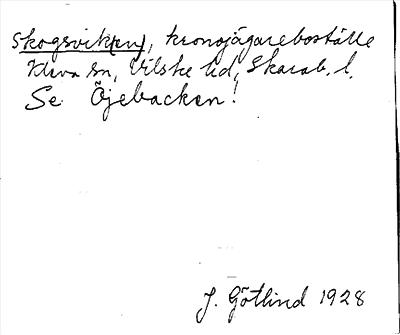 Skogsvik(en), kronojägareboställe
Kleva sn, Vilske hd, Skarab. l.
Se Öjebacken!
J. Götlind 1928